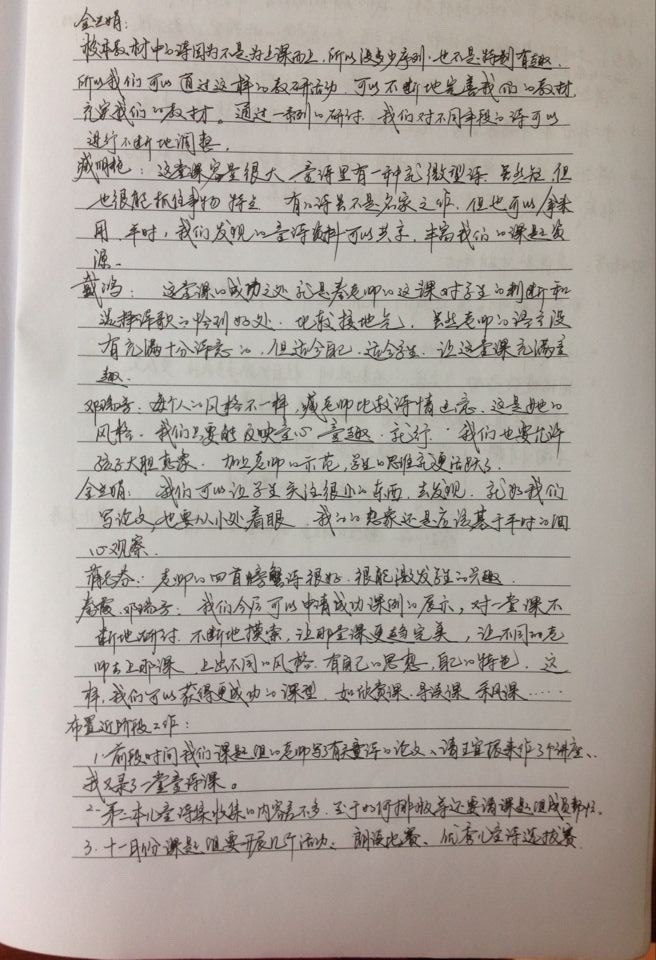 金兰娟:
校本教材中的诗因为不是为上课而上,所以缺点少序列,也不是特别有趣.
所以我们可以通过这样的教研活动,可以不断地完善我们的教材,
充实我们的教材。通过一系列的研讨,我们对不同年段的诗可以
进行不断地调整.
臧明艳:这堂课容量很大 童诗里有一种就微型诗 虽然短 但
也很能抓住事物特点 有的诗虽不是名家之作,但也可以拿来
用.平时,我们发现的童诗资料可以共享,丰富我们的课题资
源.
戴鸿:这堂课的成功之处就是春老师的这课对学生的判断和
选择诗歌的恰到好处.也很接地气,虽然老师的语言没
有充满十分诗意的,但适合自己,适合学生.让这堂课充满童
趣.
邓瑞芳:每个人的风格不一样,臧老师比较诗情画意,这是她的
风格.我们只要能反映童心童趣就行.我们也要允许
孩子大胆想象.加上老师的示范,学生的思维就更活跃了.
金兰娟:我们可以让学生关注很小的东西,去发现.就如我们
写论文,也要从小处着眼.我们的想象还是应该基于平时的细
心观察.
春:老师的四首螃蟹诗很好.很能激发学生的兴趣.
秦霞、邓瑞芳:我们今后可以申请成功课例的展示,对一堂课不
断地研讨,不断地摸索,让那堂课更趋完美,让不同的老
师去上那课,上出不同的风格.有自己的思想,自己的特色.这
样,我们可以获得更成功的课型,如欣赏课、导读课、采风课……
布置近阶段工作:
1.前段时间我们课题组的老师写了有关童诗的论文、请王宜振来作了个讲座、
我又录了一堂童诗课。
2.第二本儿童诗集收集的内容差不多,至于如何排版等还要请课题组成员帮忙.
3.十一月份课题组要开展几个活动:朗诵比赛、优秀儿童诗选拔赛.